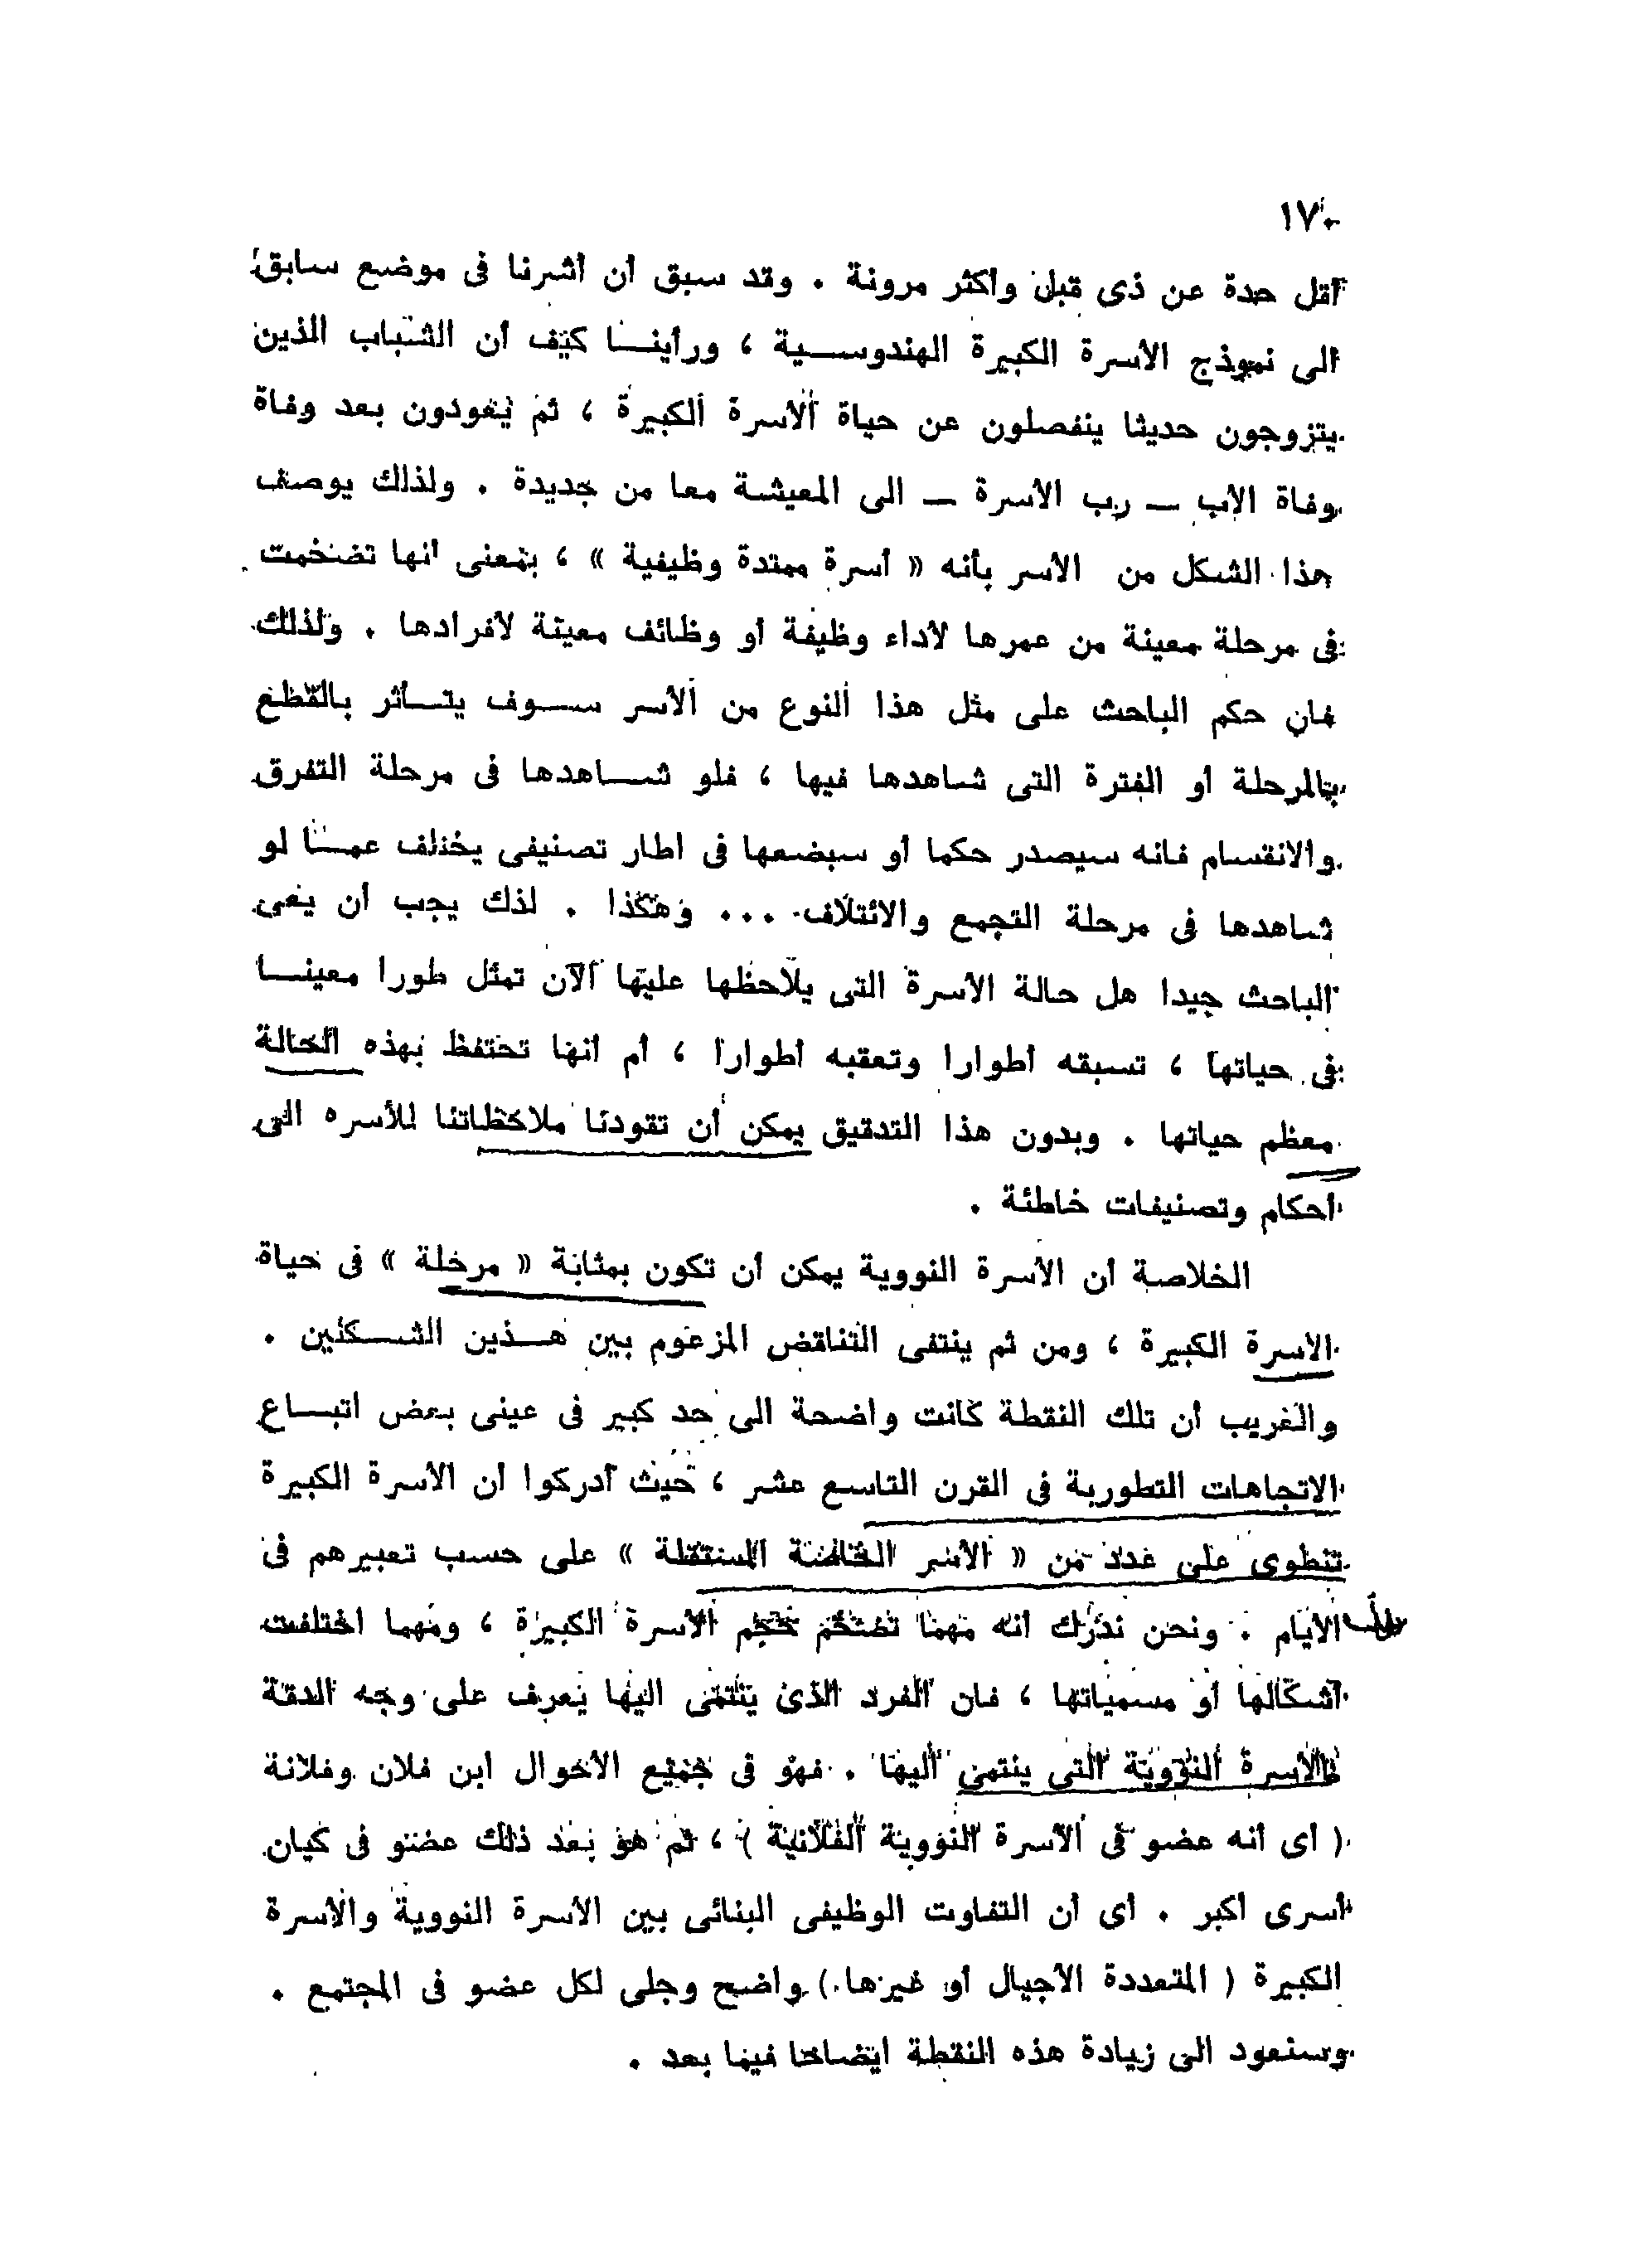 ١٧٠
أقل حدة عن ذى قبل وأكثر مرونة . وقد سبق أن أشرنا فى موضع سابق
الى نموذج الأسرة الكبيرة الهندوسـية ، ورأينـا كيف أن الشباب الذين
يتزوجون حديثا ينفصلون عن حياة الأسرة الكبيرة ، ثم يعودون بعد وفاة
وفاة الأب — رب الأسرة — الى المعيشة معا من جديدة . ولذلك يوصف
هذا الشكل من الأسر بأنه « أسرة ممتدة وظيفية » ، بمعنى أنها تضخمت
فى مرحلة معينة من عمرها لأداء وظيفة أو وظائف معينة لأفرادها . ولذلك
فان حكم الباحث على مثل هذا النوع من الأسر سـوف يتـأثر بالقطع
بالمرحلة أو الفترة التى شاهدها فيها ، فلو شـاهدها فى مرحلة التفرق
والانقسام فانه سيصدر حكما أو سيضعها فى اطار تصنيفى يختلف عمـا لو
شاهدها فى مرحلة التجمع والائتلاف ... وهكذا . لذك يجب أن يعى
الباحث جيدا هل حالة الأسرة التى يلاحظها عليها الآن تمثل طورا معينـا
فى حياتها ، تسبقه أطوارا وتعقبه أطوارا ، أم أنها تحتفظ بهذه الحالة
معظم حياتها . وبدون هذا التدقيق يمكن أن تقودنا ملاحظاتنا للأسره الى
أحكام وتصنيفات خاطئة .
الخلاصة أن الأسرة النووية يمكن أن تكون بمثابة « مرحلة » فى حياة
الاسرة الكبيرة ، ومن ثم ينتفى التناقض المزعوم بين هـذين الشـكلين .
والغريب أن تلك النقطة كانت واضحة الى حد كبير فى عينى بعض اتبـاع
الاتجاهات التطورية فى القرن التاسع عشر ، حيث أدركوا أن الأسرة الكبيرة
تنطوى على عدد من « الأسر الخاصة المستقلة » على حسب تعبيرهم فى
الأيام . ونحن ندرك أنه مهما تضخم حجم الأسرة الكبيرة ، ومهما اختلفت
أشكالها أو مسمياتها ، فان الفرد الذى ينتمى اليها يعرف على وجه الدقة
الأسرة النووية التى ينتمى اليها . فهو فى جميع الأحوال ابن فلان وفلانة
( أى أنه عضو فى الأسرة النووية الفلانية ) ، ثم هو بعد ذلك عضو فى كيان
أسرى أكبر . أى أن التفاوت الوظيفى البنائى بين الأسرة النووية والأسرة
الكبيرة ( المتعددة الأجيال أو غيرها ) واضح وجلى لكل عضو فى المجتمع .
وسنعود الى زيادة هذه النقطة ايضاحا فيما بعد .